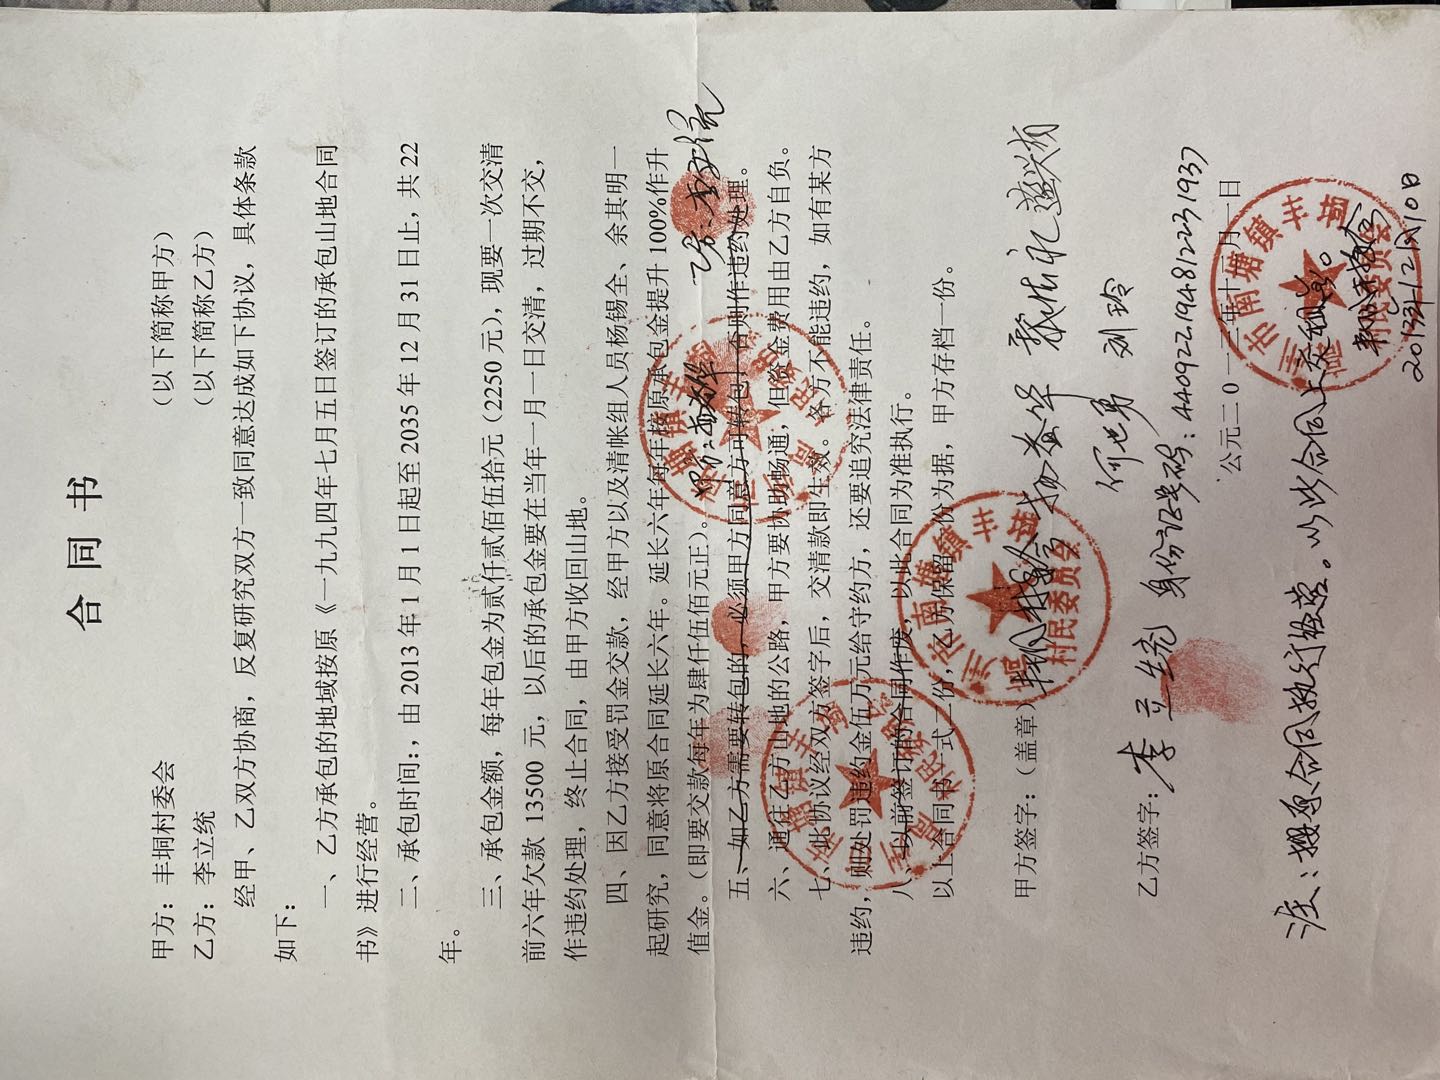 合同书
甲方：丰垌村委会 （以下简称甲方）
乙方：李立统 （以下简称乙方）
经甲、乙双方协商，反复研究双方一致同意达成如下协议，具体条款
如下：
一、乙方承包的地域按原《一九九四年七月五日签订的承包山地合同
书》进行经营。
二、承包时间：，由2013年1月1日起至2035年12月31日止，共22
年。
三、承包金额，每年包金为贰仟贰佰伍拾元（2250元），现要一次交清
前六年欠款13500元，以后的承包金要在当年一月一日交清，过期不交，
作违约处理，终止合同，由甲方收回山地。
四、因乙方接受罚金交款，经甲方以及清帐组人员杨锡全、余其明一
起研究，同意将原合同延长六年。延长六年每年按原承包金提升100%作升
值金。（即要交款每年为肆仟伍佰元正）。
五、如乙方需要转包的，必须甲方同意方可转包，否则作违约处理。
六、通往乙方山地的公路，甲方要协助畅通，但资金费用由乙方自负。
七、此协议经双方签字后，交清款即生效。各方不能违约，如有某方
违约，则处罚违约金伍万元给守约方，还要追究法律责任。
八、以前签订的合同作废，以此合同为准执行。
以上合同书一式二份，乙方保留一份为据，甲方存档一份。
甲方签字：（盖章）
何世勇 刘玲
乙方签字：李立统 身份证号码：440922194812231937
公元二0一二年十二月一日
注：按原合同执行经营。以此合同上交利息。
2013年12月10日
南塘镇丰垌
村民委员会